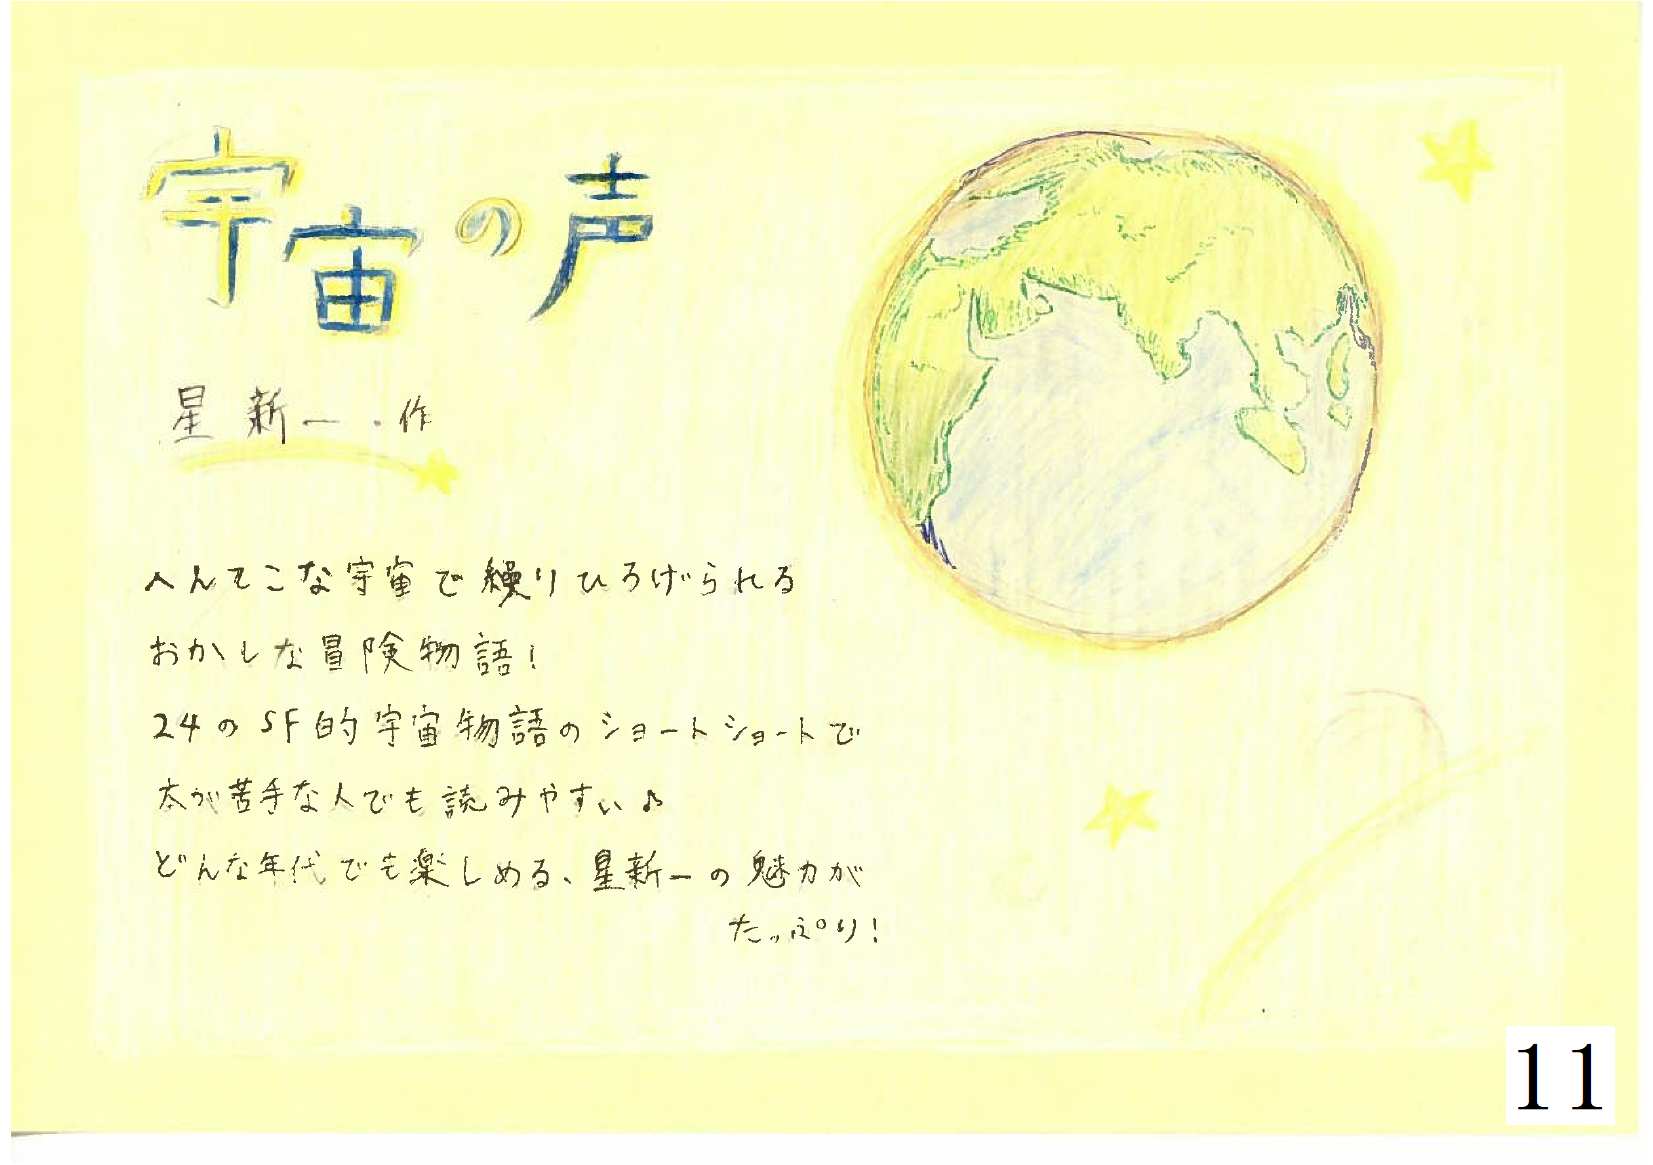 宇宙の声
星新一・作
へんてこな宇宙で繰りひろげられる
おかしな冒険物語！
24のSF的宇宙物語のショートショートで
本が苦手な人でも読みやすい♪
どんな年代でも楽しめる、星新一の魅力が
たっぷり！
11